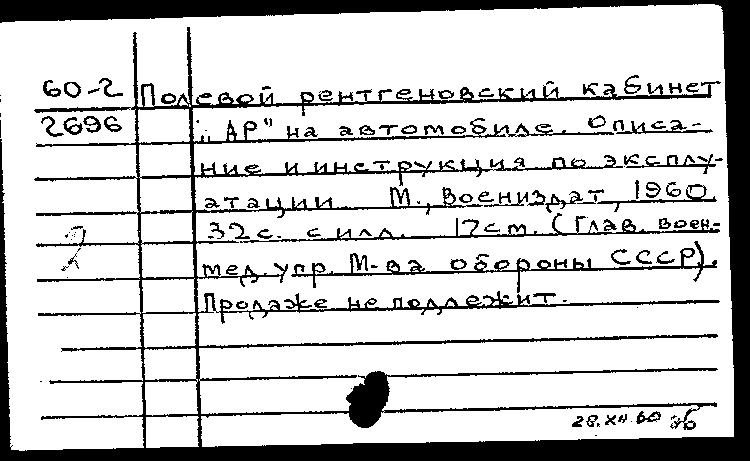 60-2 Полевой рентгеновский кабинет
2696 „АР" на автомобиле. Описа-
ние и инструкция по эксплу-
атации. М., Воениздат, 1960.
32 с. с илл. 17 см. (Глав. воен.-
мед. упр. М-ва обороны СССР).
2
Продаже не подлежит.
28.XII 60